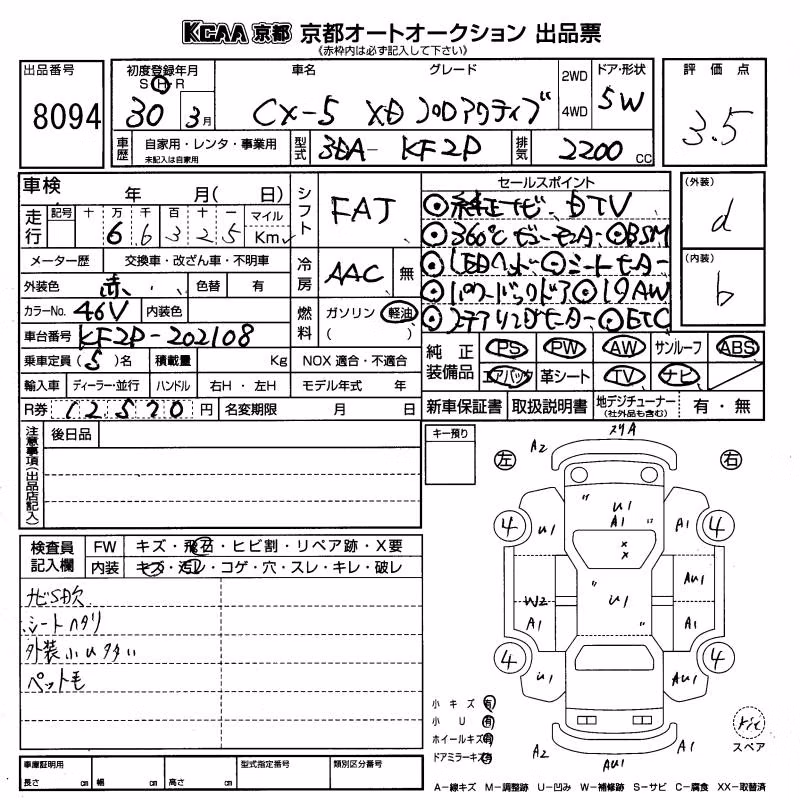 KCAA 京都 京都オートオークション 出品票
《赤枠内は必ず記入して下さい》
出品番号 8094
初度登録年月 S H R 30 3月
車名 グレード
CX-5 XD プロアクティブ
2WD 4WD
ドア・形状 5W
評価点 3.5
車歴 自家用・レンタ・事業用 未記入は自家用
型式 3DA- KF2P
排気 2200 cc
車検 年 月( 日)
走行 記号 十 万 千 百 十 一 マイル Km
6 6 3 2 5
シフト FAT
セールスポイント
◎純正ナビ DTV
◎360°ビューモニター ◎BSM
◎LEDヘッド ◎シートヒーター
◎パワーバックドア ◎19AW
◎ステアリングヒーター ◎ETC
(外装) d
(内装) b
メーター歴 交換車・改ざん車・不明車
冷房 AAC 無
外装色 赤 色替 有
カラーNo. 46V 内装色
燃料 ガソリン・軽油 ( )
車台番号 KF2P-202108
乗車定員(5)名 積載量 Kg NOX 適合・不適合
純正装備品 PS PW AW サンルーフ ABS
エアバック 革シート TV ナビ
輸入車 ディーラー・並行 ハンドル 右H・左H モデル年式 年
R券 12570 円 名変期限 月 日
新車保証書 取扱説明書 地デジチューナー (社外品も含む) 有・無
注意事項(出品店記入) 後日品
キー預り
左 右
A2 A1
U1 A1
U1 A1
4 4
W2 A1
U1
AU1 A1
4 4
U1 AU1
A2 AU1 A1
検査員記入欄 FW キズ・飛石・ヒビ割・リペア跡・X要
内装 キズ・汚レ・コゲ・穴・スレ・キレ・破レ
ナビSD欠
シートヘタリ
外装小U多い
ペット毛
小キズ 有
小U 有
ホイールキズ 有
ドアミラーキズ 有
スペア
車庫証明用 長さ cm 幅 cm 高さ cm
型式指定番号 類別区分番号
A-線キズ M-調整跡 U-凹み W-補修跡 S-サビ C-腐食 XX-取替済